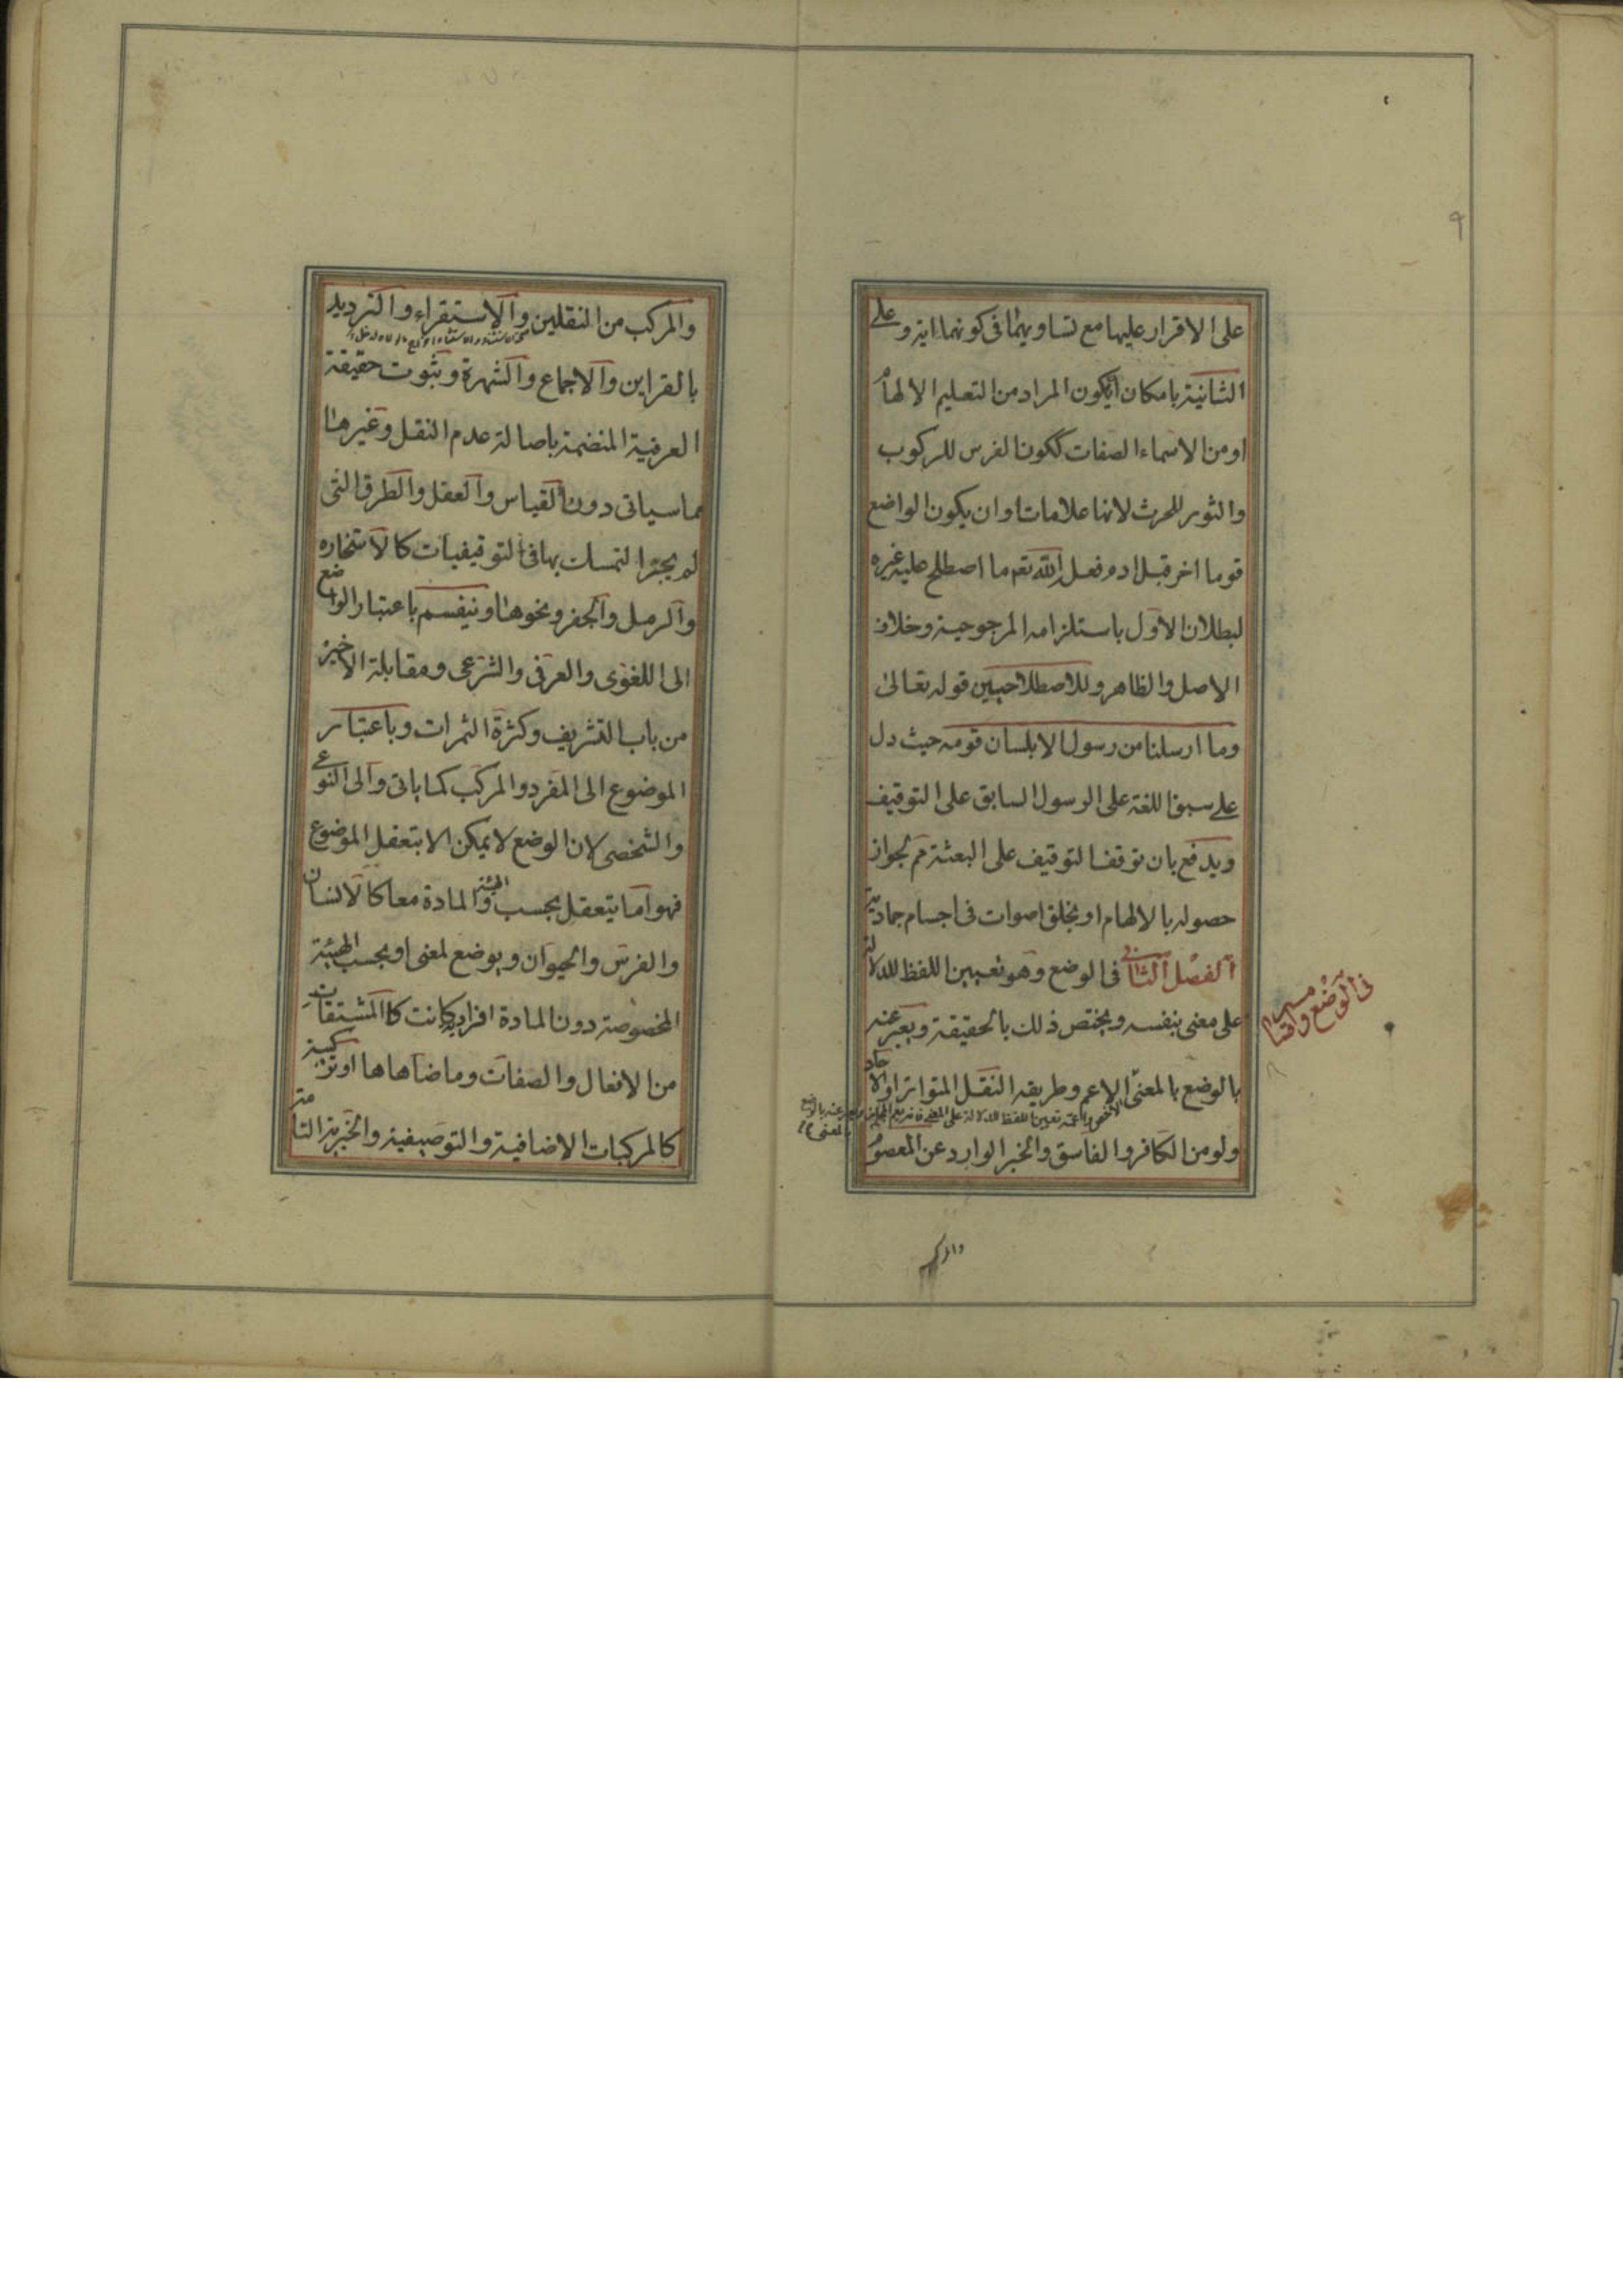 على الاقرار عليها مع تساويهما فى كونهما اية وعلى
الثانية بامكان ان يكون المراد من التعليم الالهام
او من الاسماء الصفات ككون الفرس للركوب
والثور للحرث لانها علامات او ان يكون الواضع
قوما اخر قبل ادم فعل الله تعم ما اصطلح عليه غيره
لبطلان الاول باستلزامه المرجوحية وخلاف
الاصل والظاهر وللاصطلاحيين قوله تعالى
وما ارسلنا من رسول الا بلسان قومه حيث دل
على سبق اللغة على الرسول السابق على التوقيف
ويدفع بان توقف التوقيف على البعثة مم لجواز
حصوله بالالهام او بخلق اصوات فى اجسام جمادية
الفصل الثانى فى الوضع وهو تعيين اللفظ للدلالة
على معنى بنفسه ويختص ذلك بالحقيقة ويعبر عنه
بالوضع بالمعنى الاعم وطريقه النقل المتواتر او الاحاد
ولو من الكافر والفاسق والخبر الوارد عن المعصوم
فى الوضع واقسامه
والمركب
٩
والمركب من النقلين والاستقراء والترديد
بالقراين والاجماع والشهرة وبثبوت حقيقة
العرفية المنضمة باصالة عدم النقل وغيرها
مما سياتى دون القياس والعقل والطرق التى
لم يجز التمسك بها فى التوقيفيات كالاستخاره
والرمل والجفر ونحوها وينقسم باعتبار الواضع
الى اللغوى والعرفى والشرعى ومقابلة الاخير
من باب التشريف وكثرة الثمرات وباعتبار
الموضوع الى المفرد والمركب كما ياتى والى النوعى
والشخصى لان الوضع لا يمكن الا بتعقل الموضوع
فهو اما يتعقل بحسب الهيئة والمادة معا كالانسان
والفرس والحيوان ويوضع لمعنى او بحسب الهيئة
المخصوصة دون المادة افرادية كانت كالمشتقات
من الافعال والصفات وما ضاهاها او تركيبية
كالمركبات الاضافية والتوصيفية والخبرية التامة